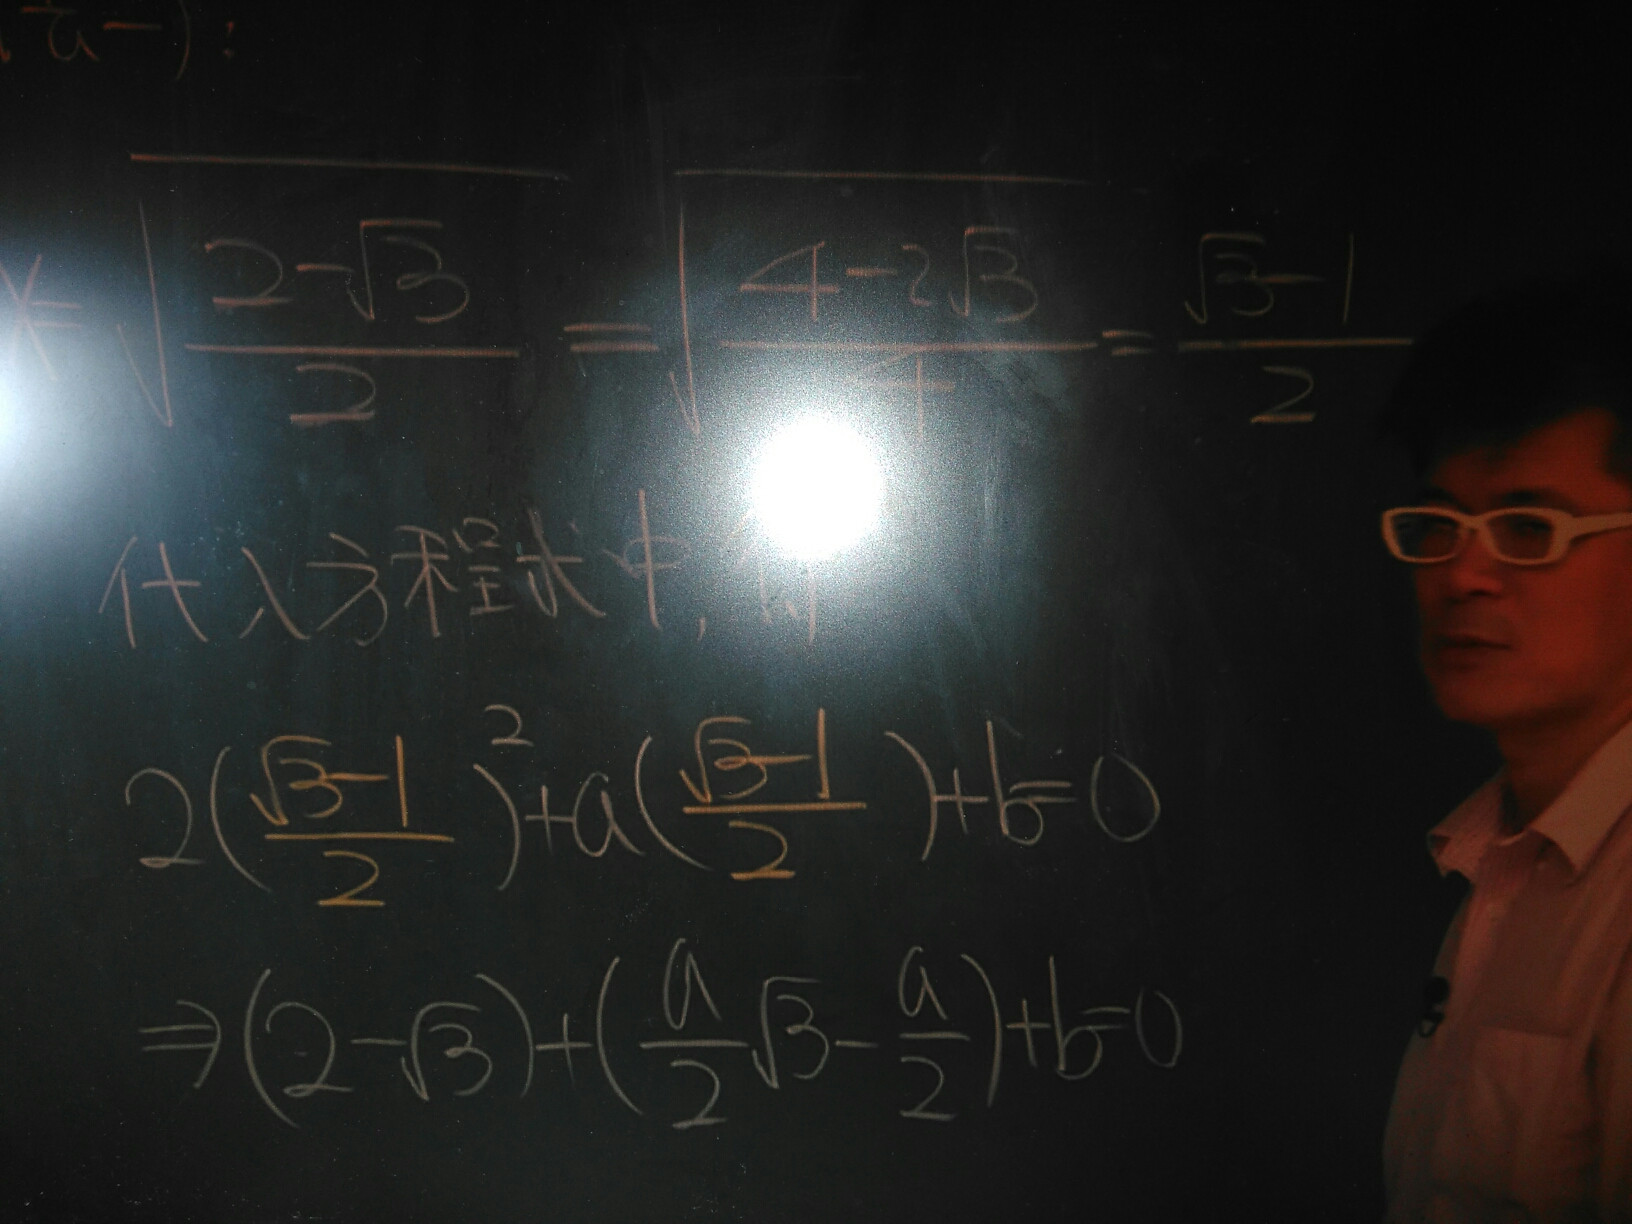 法一):
x=√((2-√3)/2)=√((4-2√3)/4)=(√3-1)/2
代入方程式中,得
2((√3-1)/2)²+a((√3-1)/2)+b=0
⇒(2-√3)+(a/2√3-a/2)+b=0